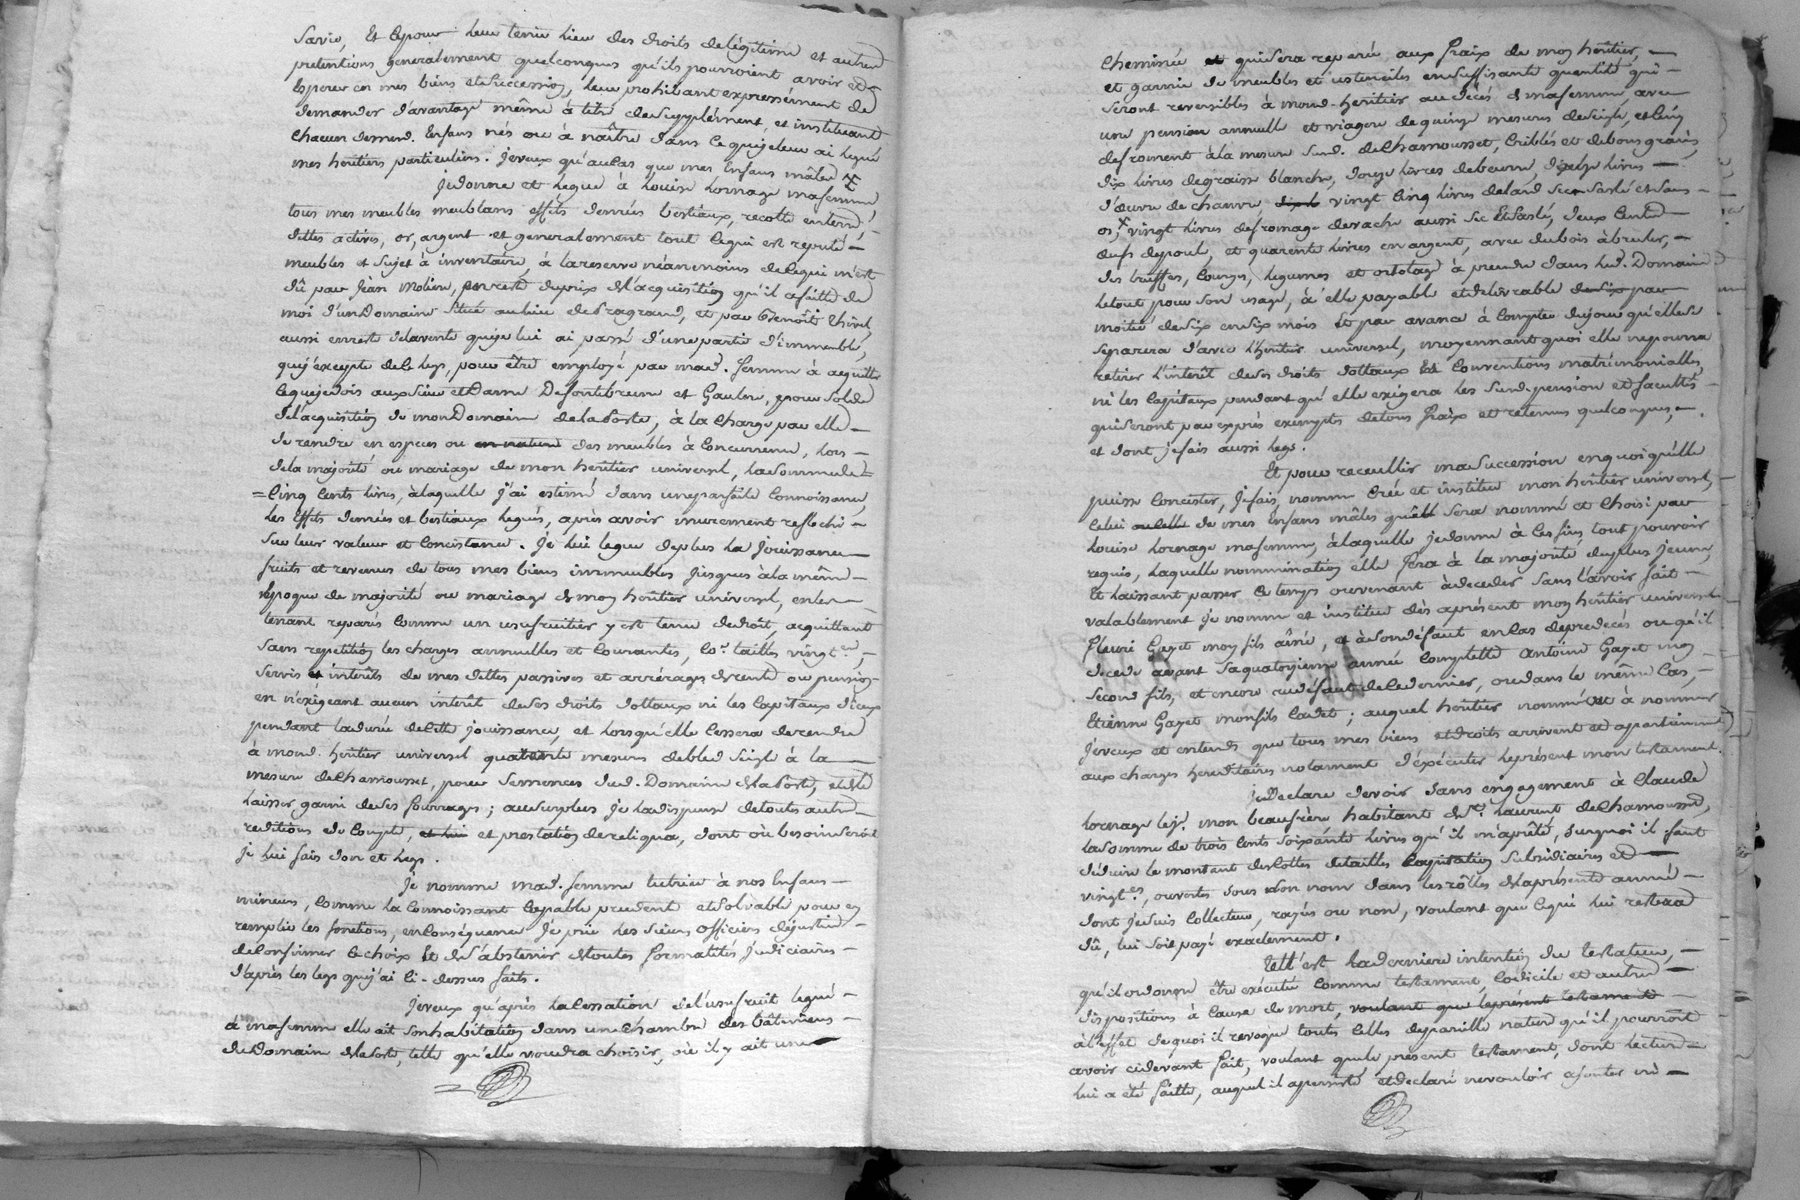 savie, Et cepour leur tenir lieu des droits delégitime et autres
pretentions generalement quelconques qu'ils pourroient avoir et
Esperer en mes biens et Succession, leur prohibant expressément de
demander d'avantage même à titre de supplément, et instituant
chacun demesd. Enfans nés ou à naître dans ce quejeleur ai legué
mes heritiers particuliers. jeveux qu'aucas que mes Enfans mâles
Jedonne et legue à Louise Lornage mafemme
tous mes meubles meublans effets denrées bestiaux, recolte
dettes actives, or, argent et generalement tout cequi est reputé
meubles et sujet à inventaire, à lareserve néanmoins decequi m'est
dû par Jean Moliere, enreste duprix del'acquisition qu'il afaitte de
moi d'unDomaine situé aulieu de Bragrand, et par Benoît
aussi enreste delavente queje lui ai passé d'une partie d'immeuble,
quej'excepte de ce legs, pour être employé par mad. femme à acquitter
cequejedois aux Sieur et Dame Desfontebrune et Gaulen, pour solde
del'acquisition de monDomaine delaPorte, à la charge par elle
de rendre en especes ou en nature des meubles à Concurrence, lors
dela majorité ou mariage de mon heritier universel, lasomme de
= Cinq Cents livres, àlaquelle j'ai estimé dans uneparfaite Connoissance,
les Effets denrées et bestiaux legués, après avoir murement reflechi
sur leur valeur et Concistance. Je lui legue deplus la Jouissance
fruits et revenus de tous mes biens immeubles jusques àla même
Eppoque de majorité ou mariage de mon heritier universel, entre-
tenant reparés Comme un usufruitier y est tenu dedroit, acquittant
sans repetition les charges annuelles et Courantes, co.e tailles vingt.es,
servis et intérêts de mes dettes passives et arrérages derente ou pension
en n'exigeant aucun intérêt deses droits dottaux ni les Capitaux d'iceux
pendant ladurée decette jouissance, et lorsqu'elle Cessera derendre
à mond. heritier universel quatorze mesures debled seigle à la
mesure deChamousset, pour Semences dud. Domaine delaPorte, etdele
laisser garni deses fourrages; ausurplus Je ladispense detoutes autres
redditions de Compte, et lui et prestation dereliqua, dont où besoinseroit
je lui fais don et legs.
Je nomme mad. femme tutrice à nos Enfans
mineurs, Comme la Connoissant Capable prudente etsolvable pour en
remplir les fonctions, enconséquence Je prie les sieurs officiers dejustice
deconfirmer ce choix Et de s'abstenir detoutes formalités judiciaires
d'après les legs quej'ai ci-dessus faits.
Jeveux qu'après laCessation del'usufruit legué
à mafemme elle ait sonhabitation dans unechambre des bâtimens
duDomaine delaPorte, telle qu'elle voudra choisir, où il y ait une
cheminée et quisera reparée aux fraix de mon heritier,
et garnie de meubles et ustenciles ensuffisante quantité qui
seront reversibles à mond. heritier audécés de mafemme, avec
une pension annuelle et viagere dequinze mesures deseigle, et Cinq
defroment àla mesure Susd. deChamousset, Criblés et debons grains,
dix livres degraisse blanche, douze livres debeurre, dixhuit livres
d'œuvre de chanvre dixh vingt Cinq livres delard sec salé et sans
os, vingt livres defromage devache aussi sec Etsalé, deux Cents
œufs depoule, et quarente livres en argent, avec dubois à bruler,
des truffes, Courges, legumes et ortolage à prendre dans led. Domaine
letout pour son usage, à elle payable etdelivrable de six par
moitié desix ensix mois Et par avance à Compter dujour qu'ellese
separera d'avec l'heritier universel, moyennant quoi elle nepourra
retirer l'interêt deses droits dottaux Et Conventions matrimonialles,
ni les Capitaux pendant qu'elle exigera les Susd. pension et facultés
quiseront parexprès exempts detous fraix et retenues quelconques,
et dont jefais aussi legs.
Et pour receuillir masuccession enquoiqu'elle
puisse Concister, Jefais, nomme Crée et institue mon heritier universel,
Celui oucelle de mes Enfans mâles qui sera nommé et choisi par
Louise Lornage mafemme, àlaquelle jedonne à cesfins tout pouvoir
requis, laquelle nommination elle fera à la majorité duplus jeune,
Et laissant passer Ce temps ouvenant àdeceder sans l'avoir fait
valablement Je nomme et institue dès aprésent mon heritier universel
Fleuri Gayet mon fils aîné, et àsondéfaut encas depredécès ou qu'il
decede avant saquatorzieme année Complette Antoine Gayet mon
second fils, et encore audéfaut decedernier, oudans le même Cas,
Etienne Gayet monfils Cadet; auquel heritier nommé et à nommer
j'eveux et entends que tous mes biens et droits arrivent et appartiennent
aux charges hereditaires notament d'éxécuter leprésent mon testament.
jeDeclare devoir sans engagement à Claude
Lornage lej.e mon beaufrère habitant de St. Laurent de Chamousset,
lasomme de trois Cents soixante livres qu'il m'aprêté, surquoi il faut
déduire le montant desCottes detailles Capitation subsidiaires et
vingt.es, ouvertes sous son nom dans les rôlles delaprésente année
dont jesuis Collecteur, rayés ou non, voulant que Cequi lui restera
dû, lui soit payé exactement.
Tell'est laderniere intention du testateur,
qu'il ordonne être exécutée Comme testament, Codicile et autres
dispositions à Cause de mort, voulant que leprésent testament
àl'effet dequoi il revoque toutes celles depareille nature qu'il pourroit
avoir cidevant fait, voulant quele présent testament, dont lecture
lui a été faitte, auquel il apersisté etdeclaré nevouloir ajouter ni